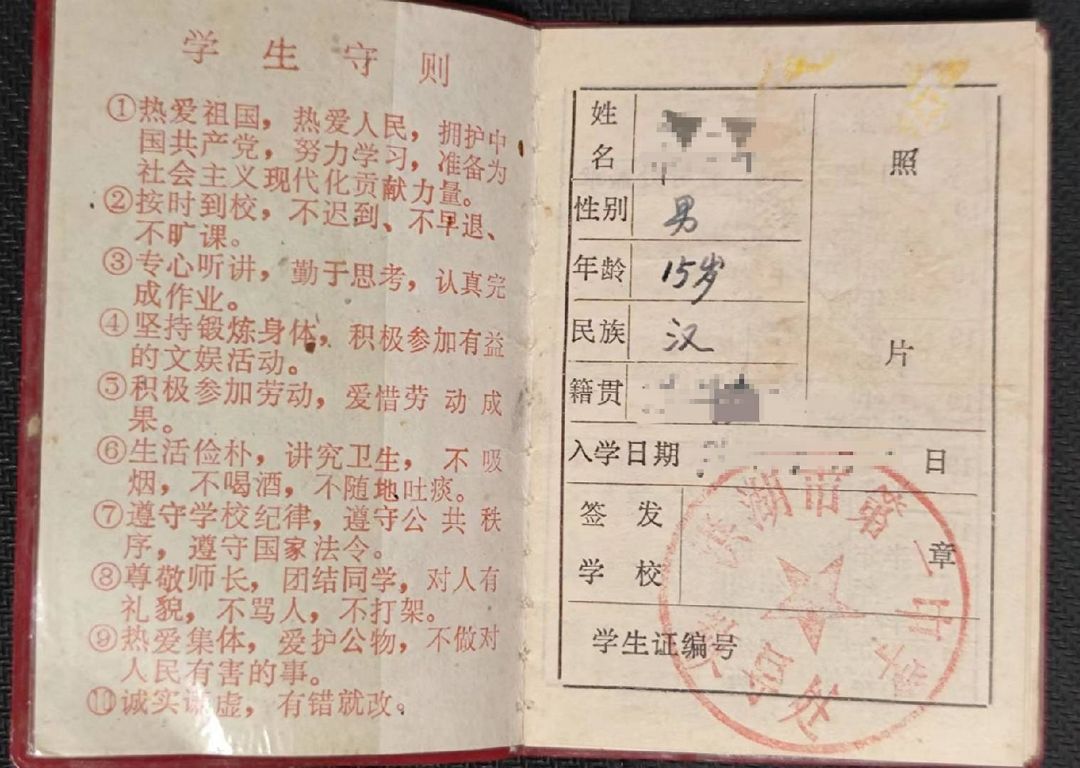 学生守则
①热爱祖国，热爱人民，拥护中
国共产党，努力学习，准备为
社会主义现代化贡献力量。
②按时到校，不迟到、不早退、
不旷课。
③专心听讲，勤于思考，认真完
成作业。
④坚持锻炼身体，积极参加有益
的文娱活动。
⑤积极参加劳动，爱惜劳动成
果。
⑥生活俭朴，讲究卫生，不吸
烟，不喝酒，不随地吐痰。
⑦遵守学校纪律，遵守公共秩
序，遵守国家法令。
⑧尊敬师长，团结同学，对人有
礼貌，不骂人，不打架。
⑨热爱集体，爱护公物，不做对
人民有害的事。
⑩诚实谦虚，有错就改。
姓名
性别 男
年龄 15岁
民族 汉
籍贯
照片
入学日期 日
签发学校 章
学生证编号
洪湖市第二中学